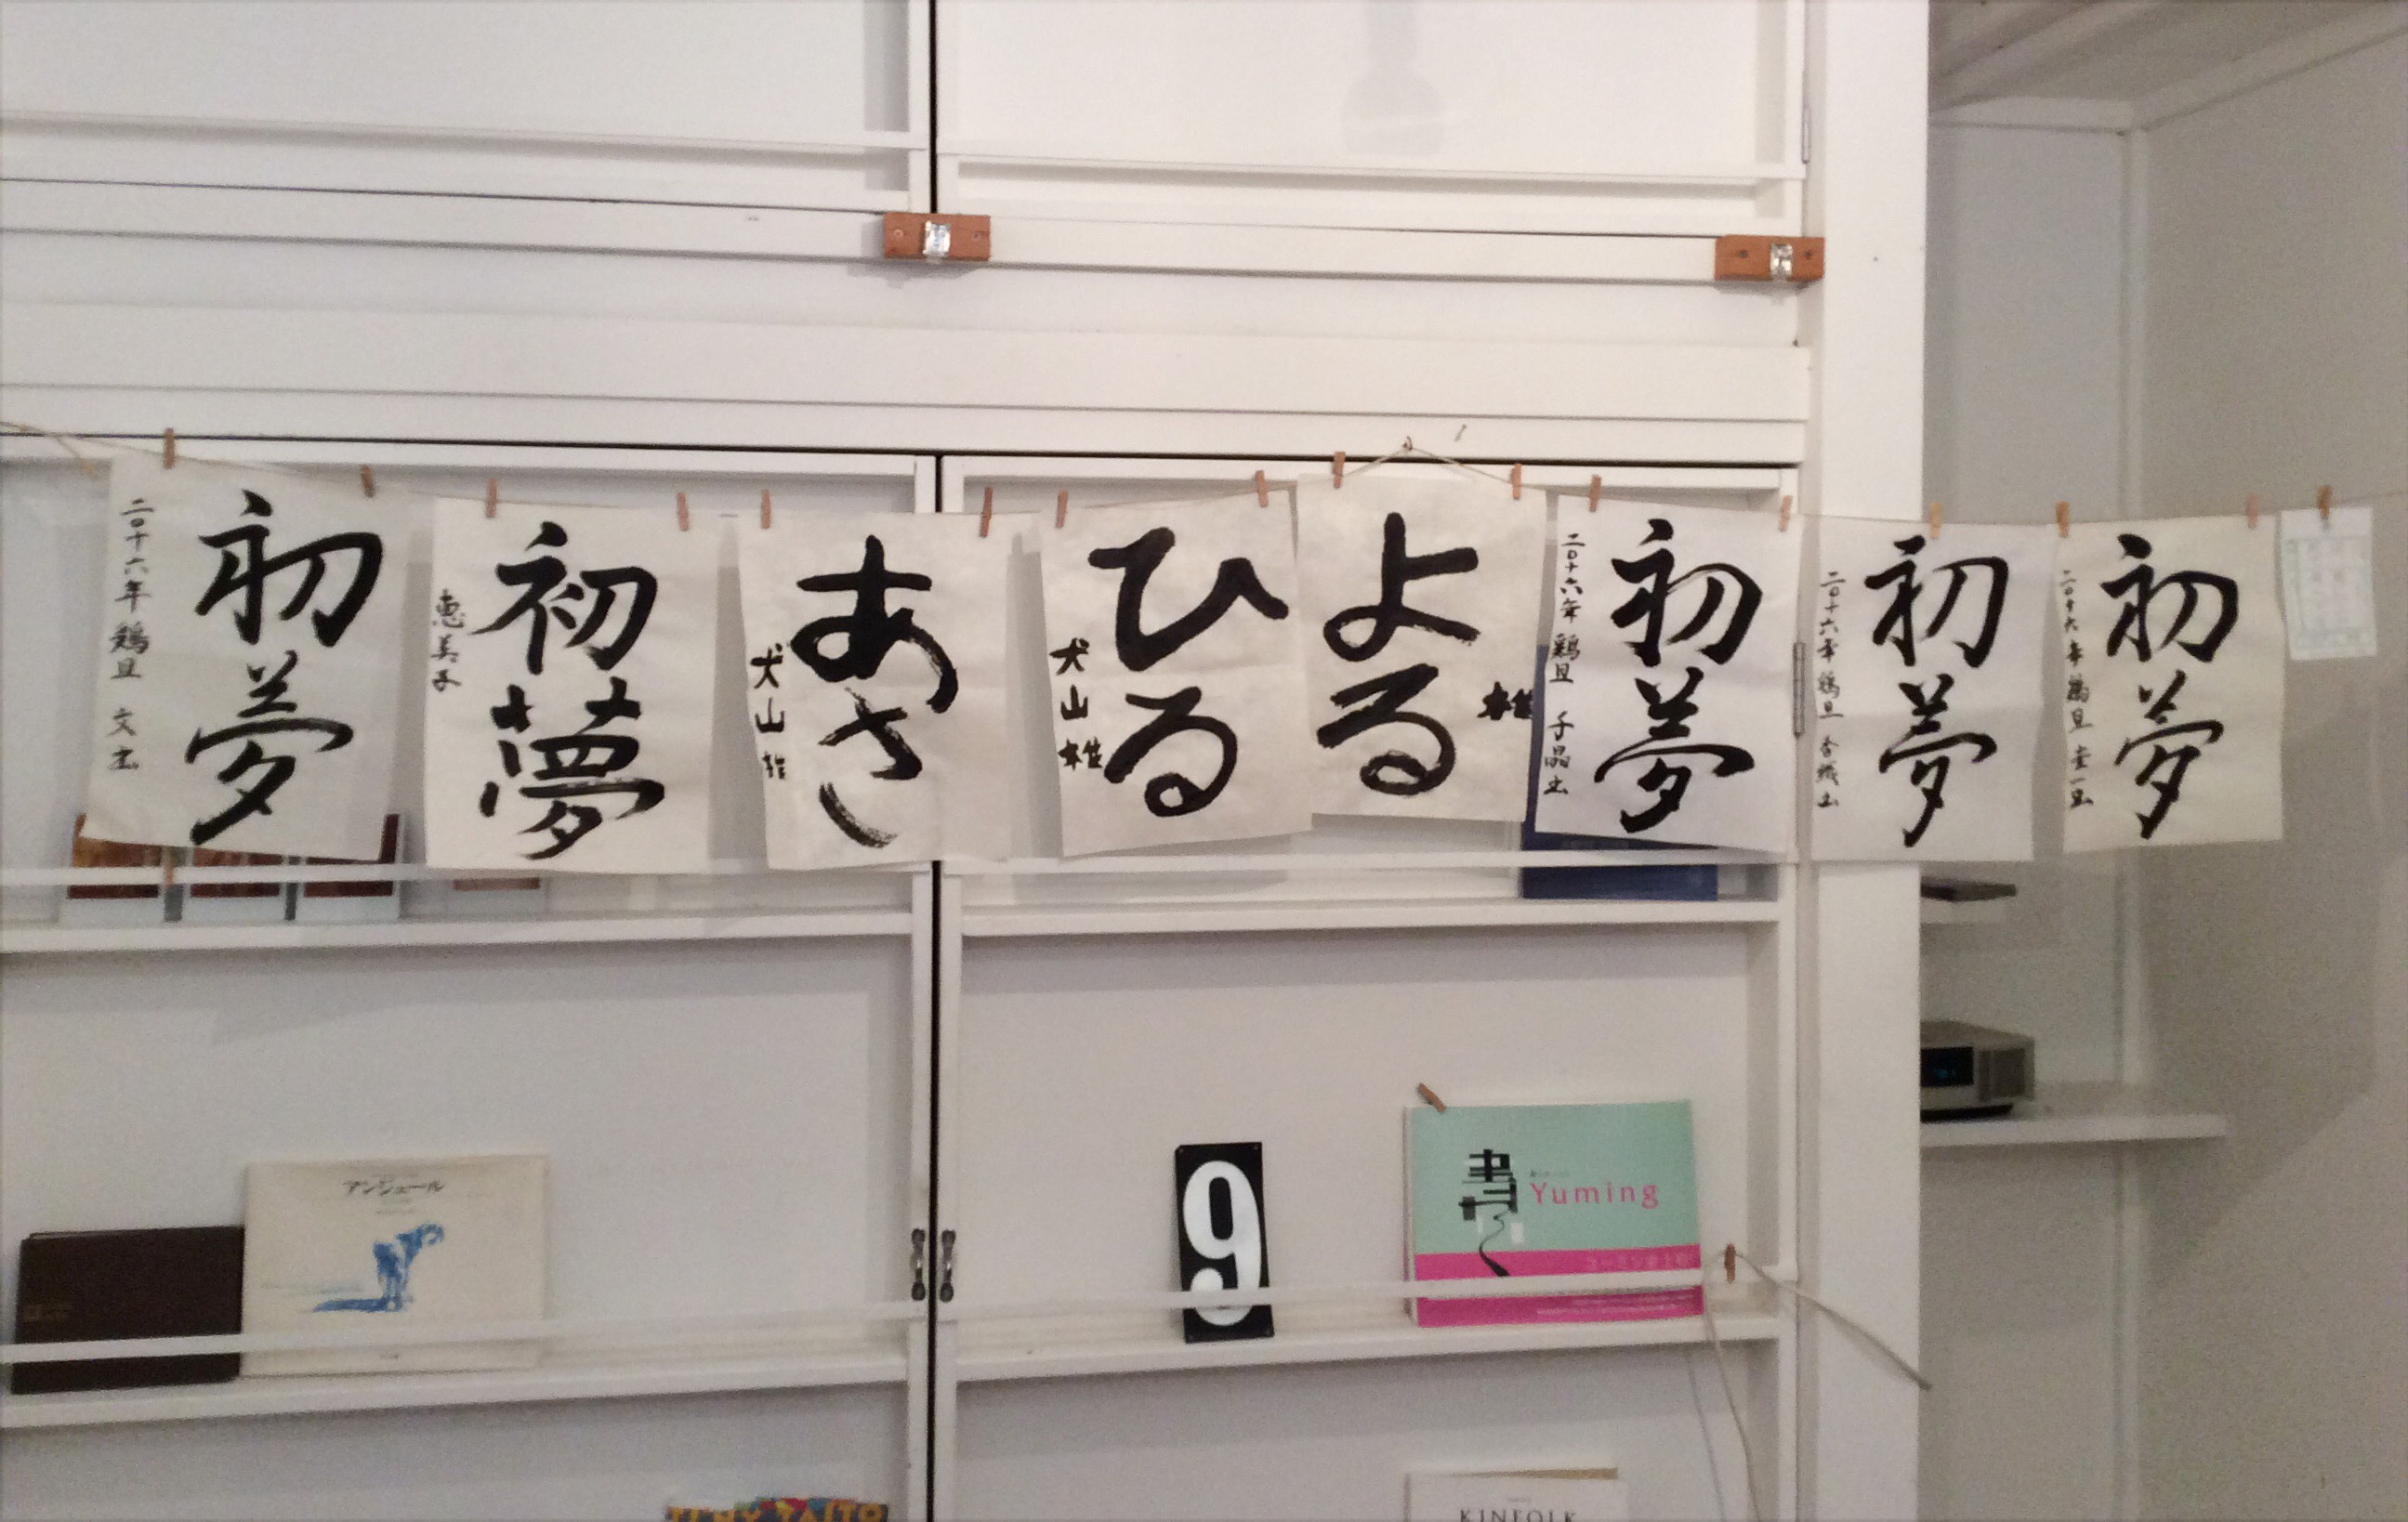 初夢
二〇十六年 鶏旦 文出
初夢
恵美子
あさ
犬山
ひる
犬山 雄
よる
雄
初夢
二〇十六年 鶏旦 千晶出
初夢
二〇十六年 鶏旦
初夢
二〇十六年 鶏旦
アンジェール
9
書く
Yuming
KINFOLK